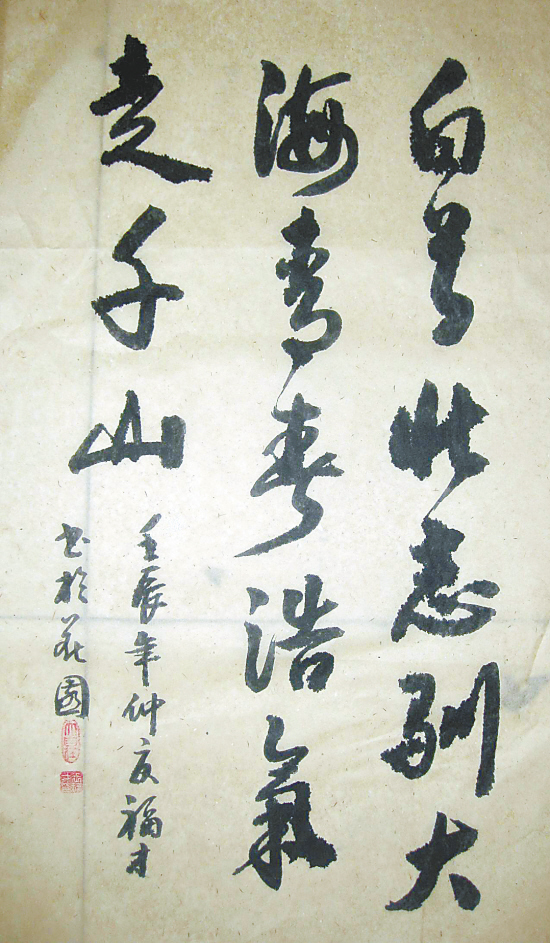 白首壮志驯大
海青春浩氣
走千山
壬辰年仲夏福才
书於花園